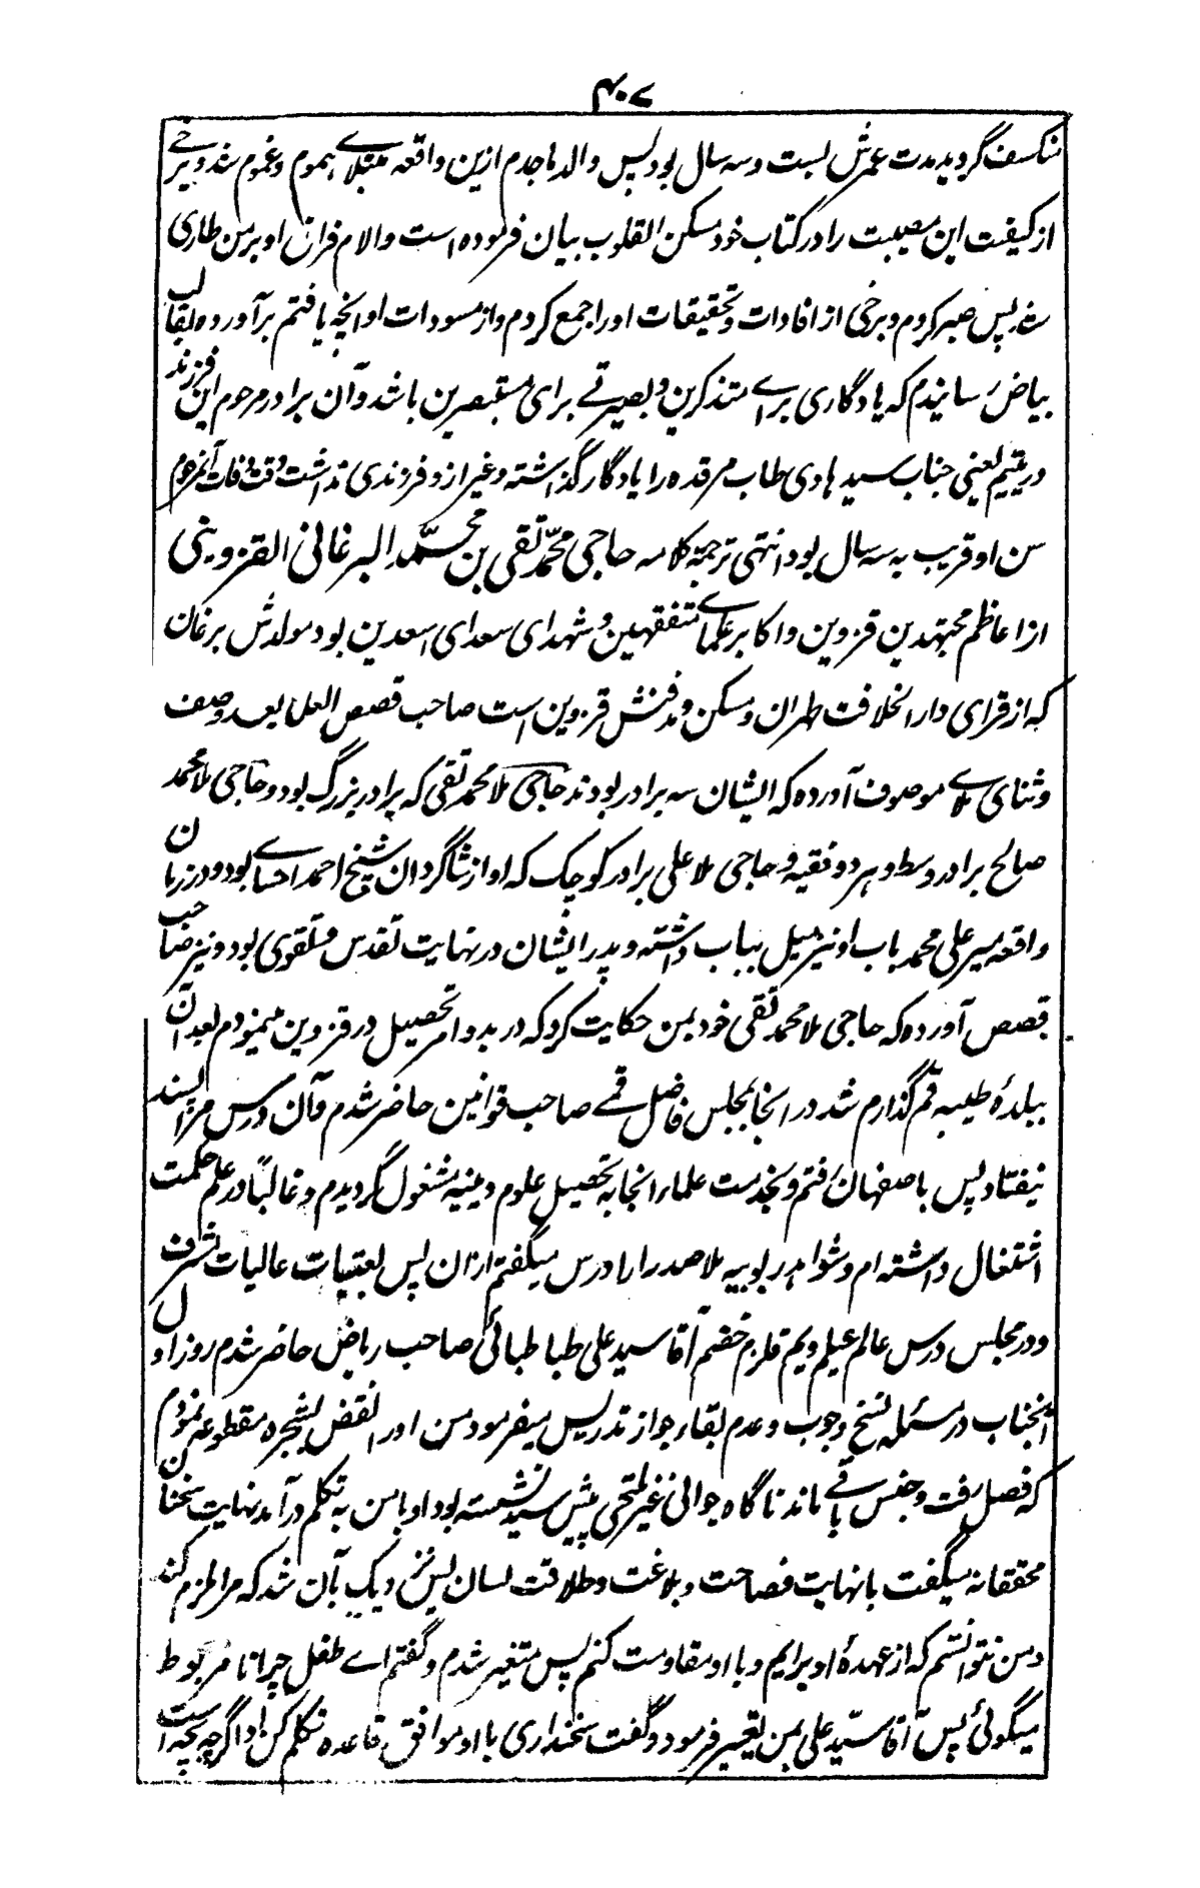 ۴۰۷
منکسف گردید مدت عمرش بست و سه سال بود پس والد ماجدم ازین واقعه مبتلاے هموم و غموم شد و برخے
از کیفیت این مصیبت را در کتاب خود مسکن القلوب بیان فرموده است و الام فراق او بر من طاری
شد پس صبر کردم و برخی از افادات و تحقیقات او را جمع کردم و از مسودات او انچه یافتم برآورده بقالب
بیاض رسانیدم که یادگاری براے متذکرین و بصیرتے برای مستبصرین باشد و آن برادر مرحوم این فرزند
در یتیم یعنی جناب سید هادی طاب مرقده را یادگار گذاشته و غیر از و فرزندی نداشت وقت وفات آنمرحوم
سن او قریب به سه سال بود انتهی ترجمة کلامه حاجی محمّد تقی بن محمّد البرغانی القزوینی
از اعاظم مجتهدین قزوین و اکابر علماے متفقهین و شهدای سعدای اسعدین بود مولدش برغان
که از قرای دار الخلافت طهران و مسکن و مدفنش قزوین است صاحب قصص العلما بعد وصف
و ثنای ملاے موصوف آورده که ایشان سه برادر بودند حاجی ملا محمد تقی که برادر بزرگ بود و حاجی ملا محمد
صالح برادر وسط و هر دو فقیه و حاجی ملا علی برادر کوچک که او از شاگردان شیخ احمد احسائے بود و در زمان
واقعه میر علی محمد باب او نیز میل بباب داشته و پدر ایشان در نهایت تقدس و تقوی بود و نیز صاحب
قصص آورده که حاجی ملا محمد تقی خود بمن حکایت کرد که در بدو امر تحصیل در قزوین مینمودم بعد ازان
ببلدۀ طیبه قم گذارم شد در انجا بمجلس فاضل قمے صاحب قوانین حاضر شدم و آن درس مرا پسند
نیفتاد پس باصفهان رفتم و بخدمت علماء انجا به تحصیل علوم دینیه مشغول گردیدم و غالباً در علم حکمت
اشتغال داشته ام و شواهد ربوبیه ملا صدرا را درس میگفتم ازان پس بعتبات عالیات تشرف
و در مجلس درس عالم عیلم و یم قلزم خضم آقا سید علی طباطبائی صاحب ریاض حاضر شدم روز اول
آنجناب در مسئله نسخ وجوب و عدم بقاء جواز تدریس میفرمود من او را نقض بشجره مقطوعه نمودم
که فصل رفت و جنس باقے ماند ناگاه جوانی غیر ملتحی پیش سید نشسته بود او با من به تکلم درآمد نهایت سخنان
محققانه میگفت با نهایت فصاحت و بلاغت و طلاقت لسان پس نزدیک بآن شد که مرا ملزم کند
و من نتوانستم که از عهدۀ او برایم و با او مقاومت کنم پس متغیر شدم و گفتم اے طفل چرا نا مربوط
میگوئی پس آقا سیّد علی بمن تغیر فرمود و گفت سخنداری با او موافق قاعده تکلم کن او اگرچه بچه است